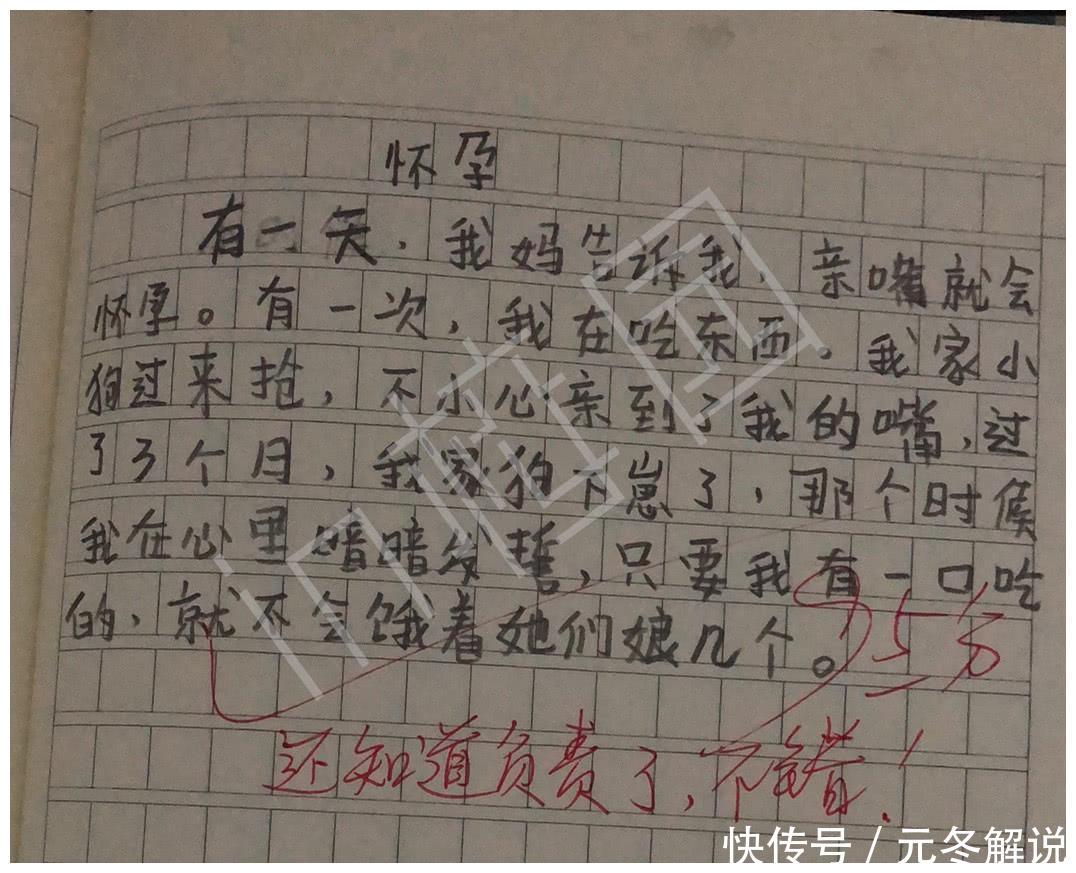 怀孕
有一天，我妈告诉我，亲嘴就会
怀孕。有一次，我在吃东西。我家小
狗过来抢，不小心亲到了我的嘴，过
了3个月，我家狗下崽了，那个时候
我在心里暗暗发誓，只要我有一口吃
的，就不会饿着她们娘几个。
95分
还知道负责了，不错！
快传号／元冬解说